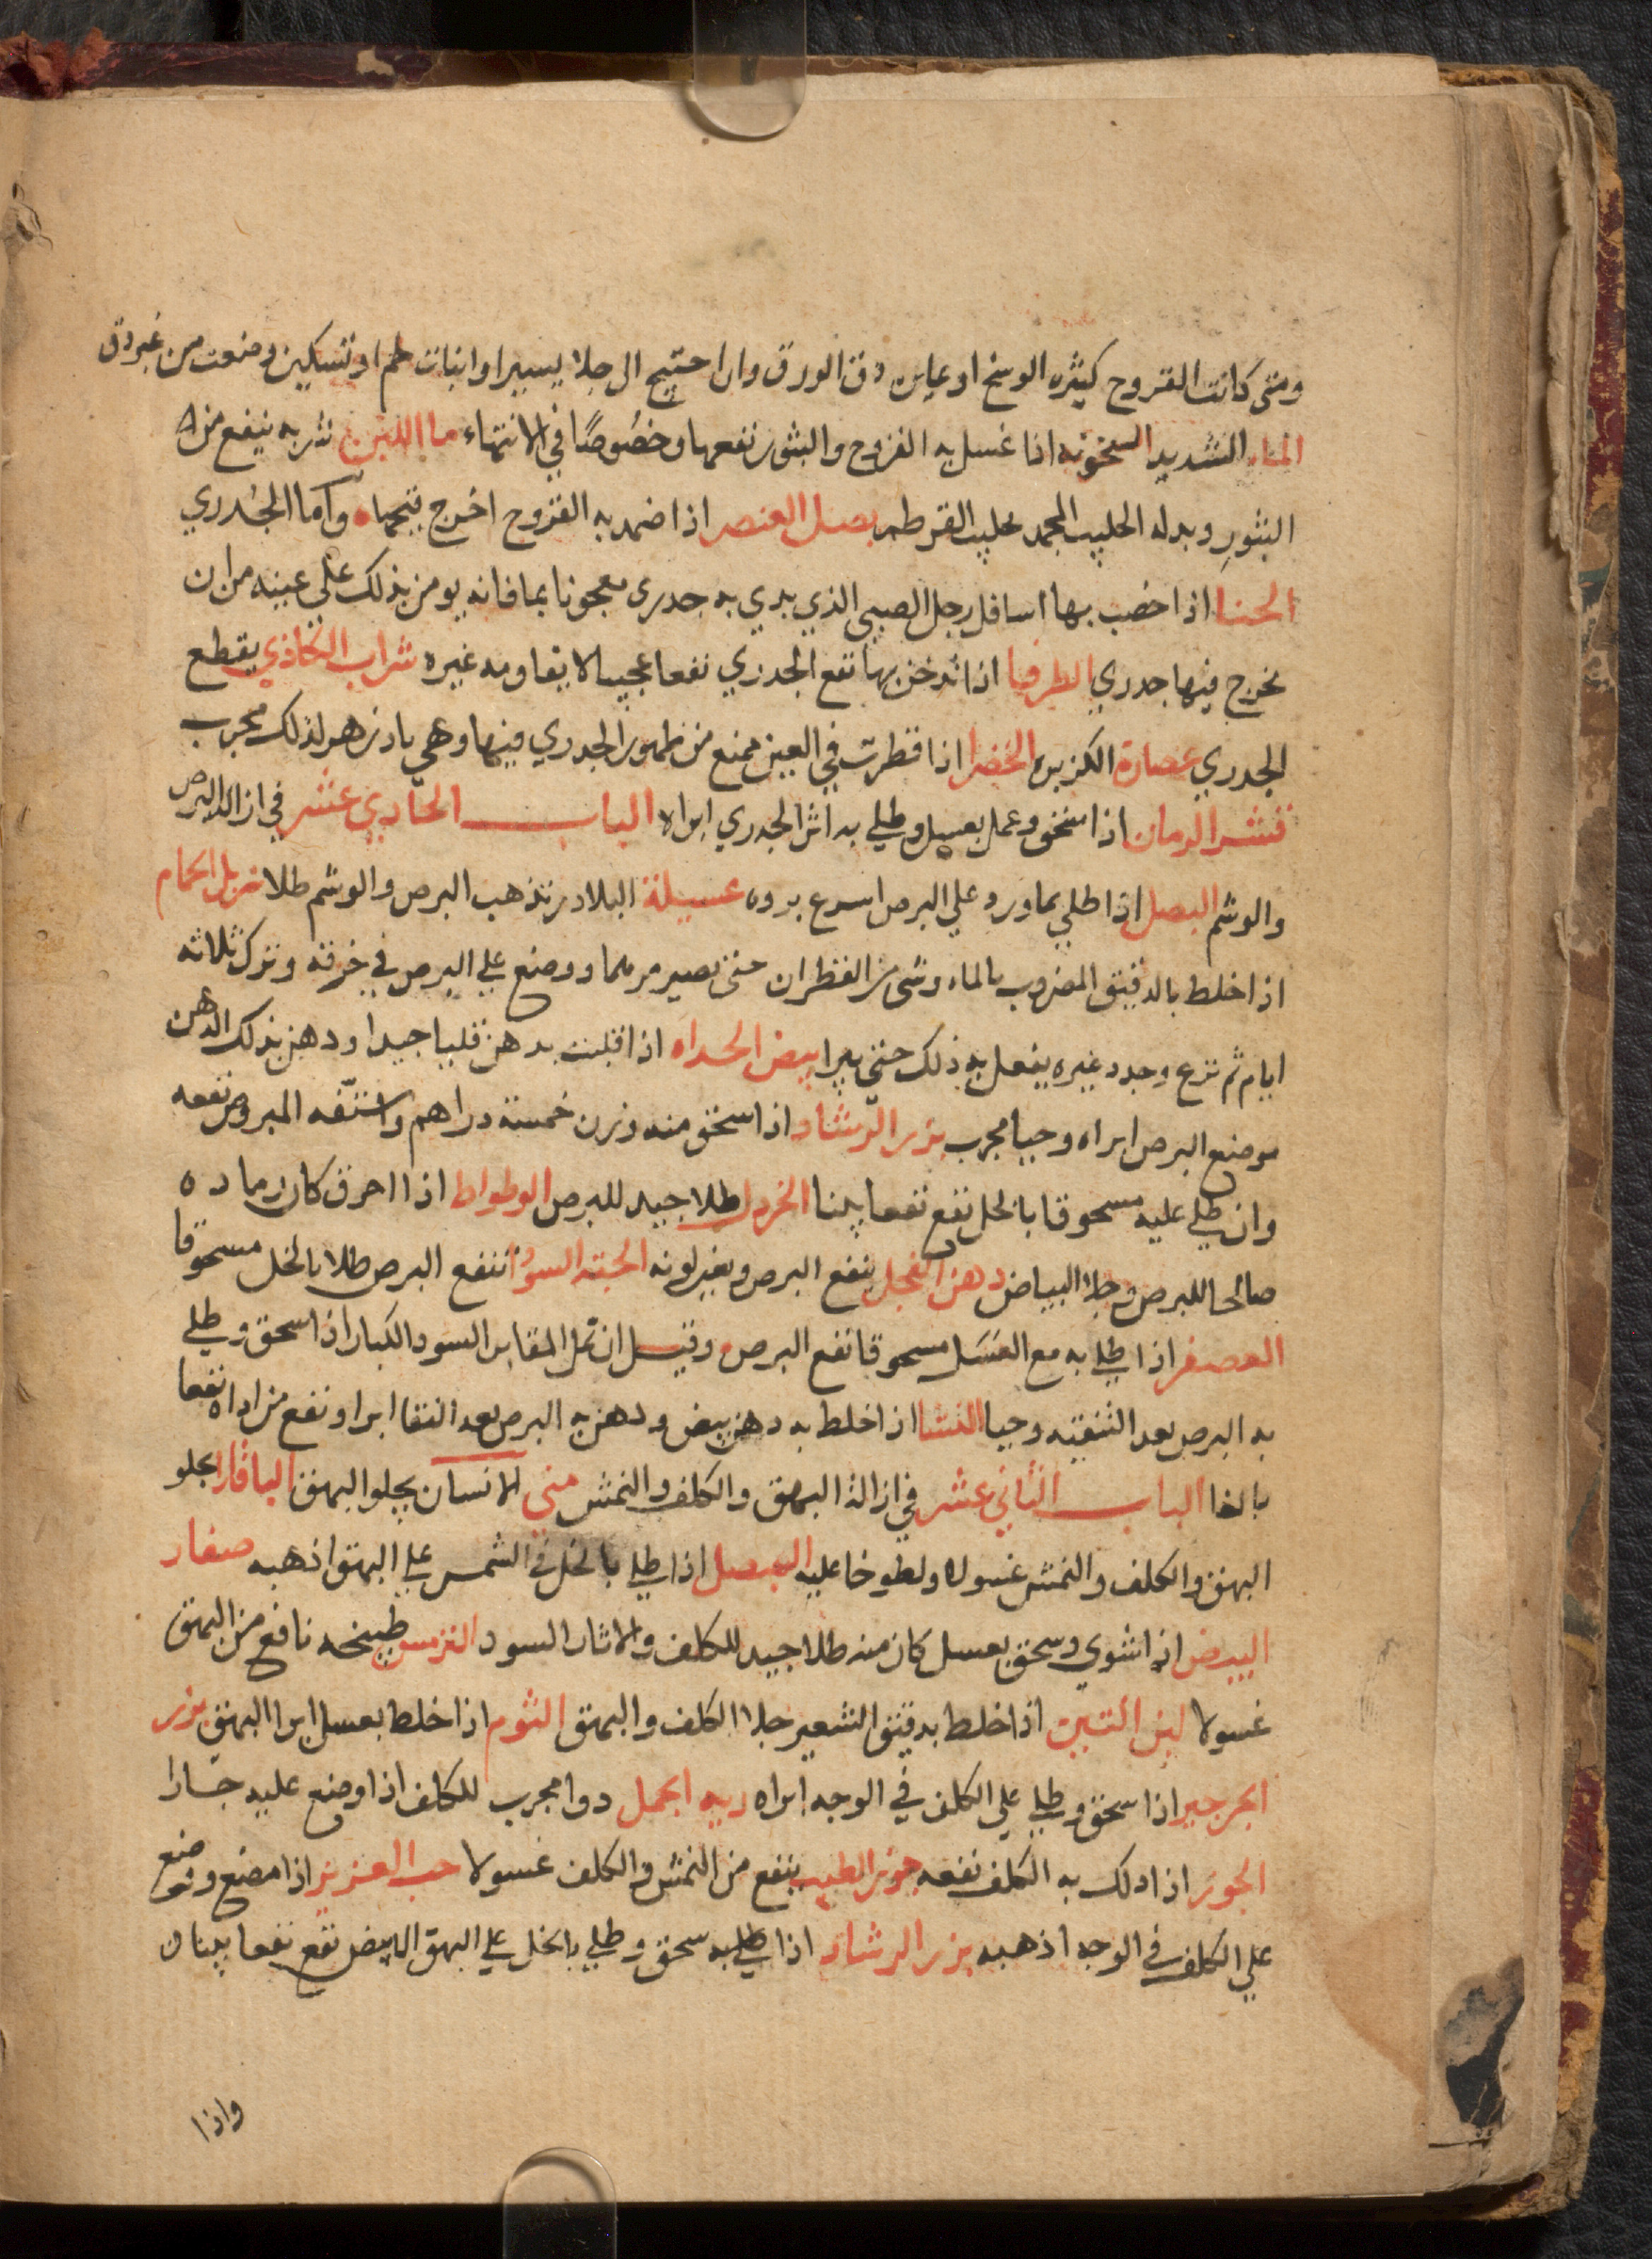 ومتى كانت القروح كثيره الوسخ او عاير دق الورق وان احتيج الى جلا يسير او انبات لحم او تسكين وضعت من غير دق
الماء الشديد السخونه اذا غسل به القروح والبثور نفعها وخصوصًا في الانتهاء ما الجبن شربه ينفع من
البثور وبدله الحليب المجمد بحليب القرطم بصل العنصر اذا ضمد به القروح اخرج قيحها واما الجدري
الحنا اذا خضب بها اسافل رجل الصبي الذي بدي به جدري معجونا بما فانه يومن بذلك على عينه من ان
يخرج فيها جدري الطرفا اذا تدخن بها نفع الجدري نفعا عجيبا لا يقاومه غيره شراب الكاذي يقطع
الجدري عصارة الكزبره الخضرا اذا قطرت في العين يمنع من ظهور الجدري فيها وهي بادزهر لذلك مجرب
قشر الرمان اذا سحق وعمل بعسل وطلي به اثر الجدري ابراه الباب الحادي عشر في ازالة البرص
والوشم البصل اذا طلي بماورد على البرص اسرع بروه عسيلة البلادر تذهب البرص والوشم طلا زبل الحمام
اذا خلط بالدقيق المضروب بالماء وشي من القطران حتى يصير مرهما ووضع على البرص في خرقه وترك ثلاثه
ايام ثم نزع وجدد غيره يفعل به ذلك حتى يبرا بيض الحداه اذا قليت بدهن قليا جيدا ودهن بذلك الدهن
موضع البرص ابراه وحيا مجرب بزر الرشاد اذا سحق منه وزن خمسة دراهم واستفه المبروص نفعه
وان طلي عليه مسحوقا بالخل نفع نفعا بينا الخردل طلا جيد للبرص الوطواط اذا احرق كان رماده
صالحا للبرص وجلا البياض دهن الفجل ينفع البرص ويغير لونه الحبة السودا تنفع البرص طلا بالخل مسحوقا
العصفر اذا طلي به مع العسل مسحوقا نفع البرص وقيل ان نمل المقابر السود الكبار اذا سحق وطلي
به البرص بعد التنقيه وحيا النشا اذا خلط به دهن بيض ودهن به البرص بعد النقا ابرا ونفع من اداه نفعا
بالغا الباب الثاني عشر في ازالة البهق والكلف والنمش مني الانسان يجلو البهق الباقلا يجلو
البهق والكلف والنمش غسولا ولطوخا عليه البصل اذا طلي بالخل في الشمس على البهق اذهبه صفار
البيض اذا شوي وسحق بعسل كان منه طلا جيد للكلف والاثار السود الترمس طبيخه نافع من البهق
غسولا لبن التين اذا خلط بدقيق الشعير جلا الكلف والبهق الثوم اذا خلط بعسل ابرا البهق بزر
الجرجير اذا سحق وطلي على الكلف في الوجه ابراه ريه الجمل دوا مجرب للكلف اذا وضع عليه حارا
الجوز اذا دلك به الكلف نفعه جوز الطيب ينفع من النمش والكلف غسولا حب العزيز اذا مضغ ووضع
على الكلف في الوجه اذهبه بزر الرشاد اذا طلي به سحق وطلي بالخل على البهق الابيض نفع نفعا بينا
واذا